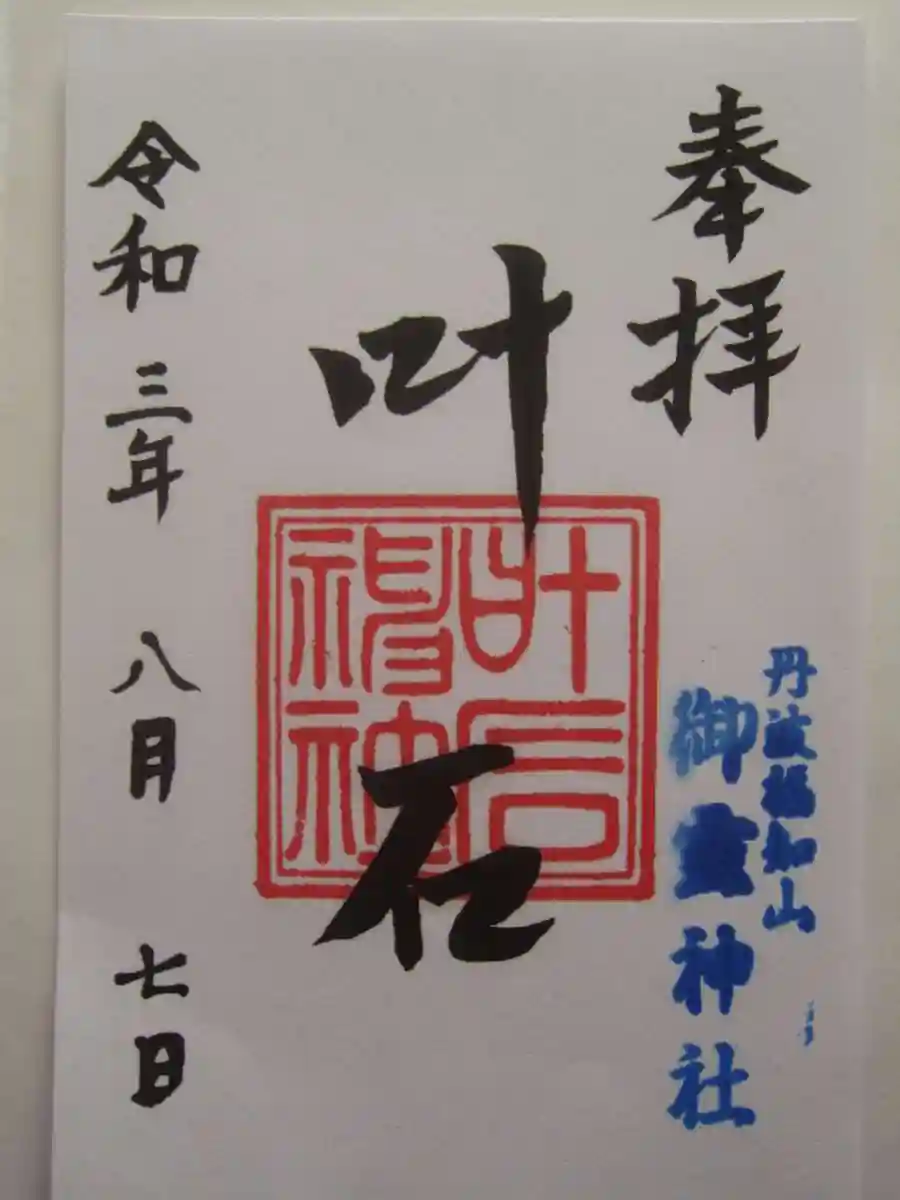 奉拝
丹波福知山
御霊神社
叶石
叶石
神
令和三年八月七日